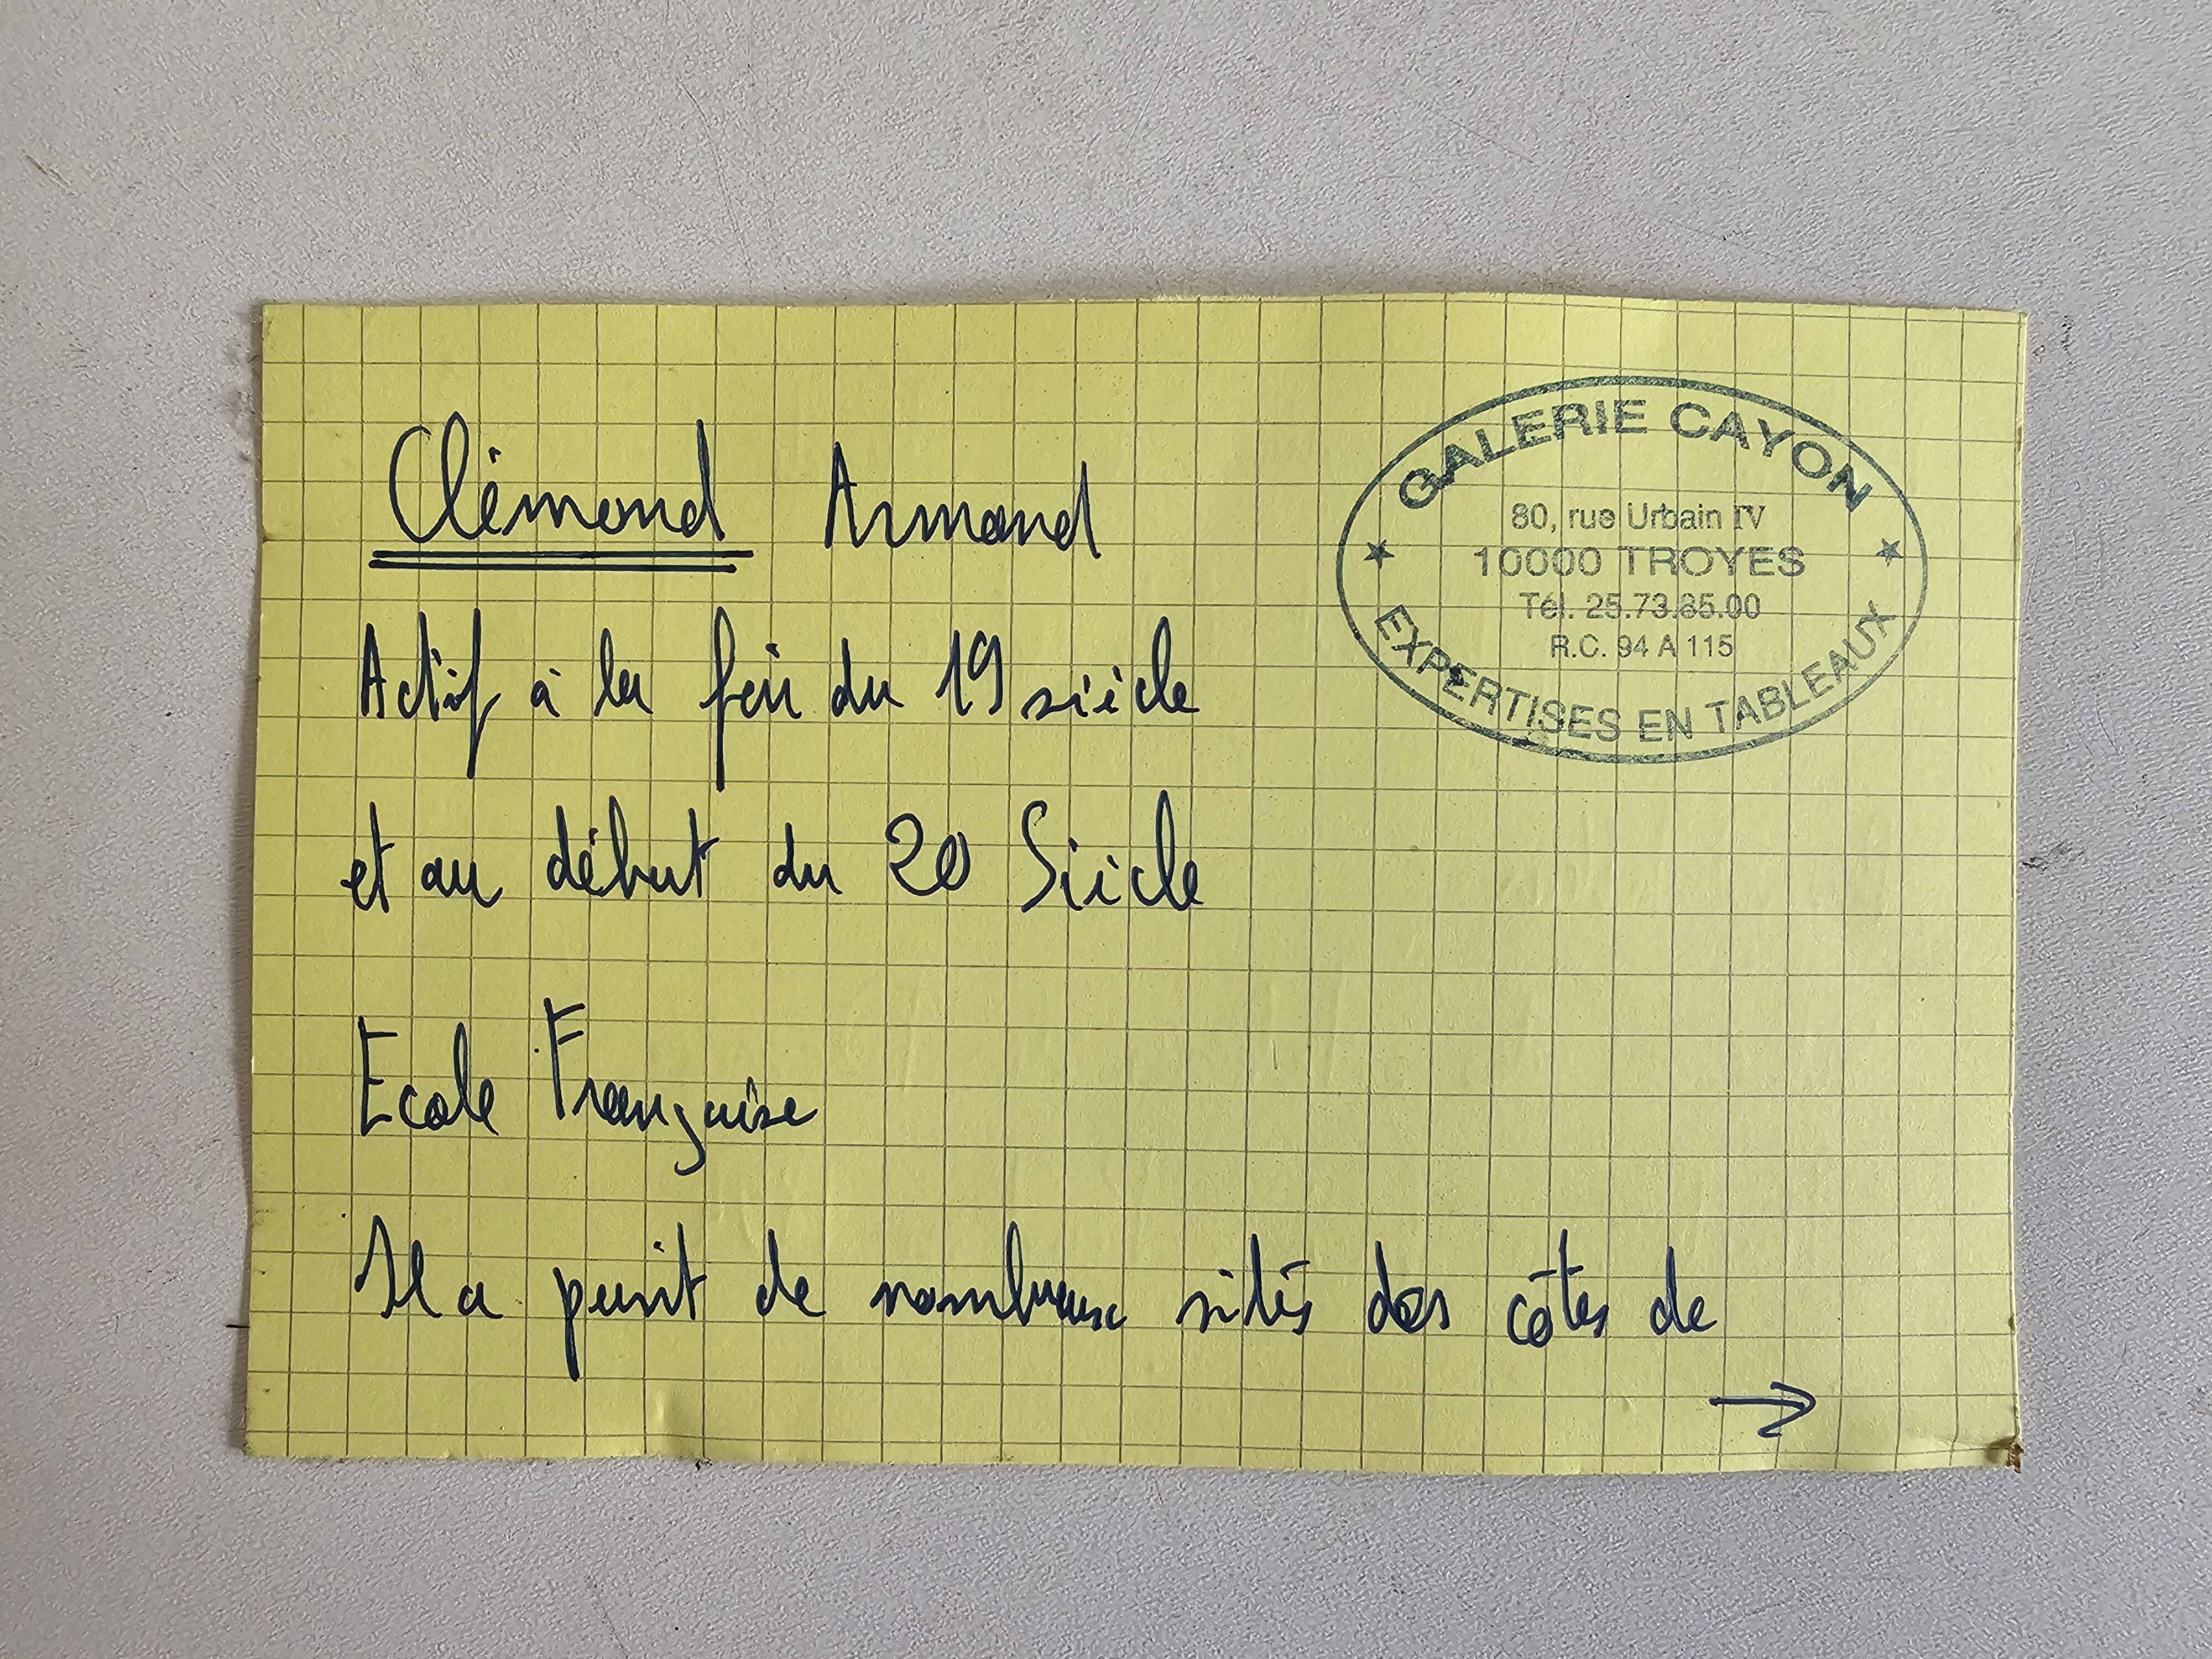 Clémond Armand
Actif à la fin du 19 siècle
et au début du 20 Siècle
Ecole Française
Il a peint de nombreux sites des côtes de
→
GALERIE CAYON
80, rue Urbain IV
10000 TROYES
Tél. 25.73.85.00
R.C. 94 A 115
EXPERTISES EN TABLEAUX